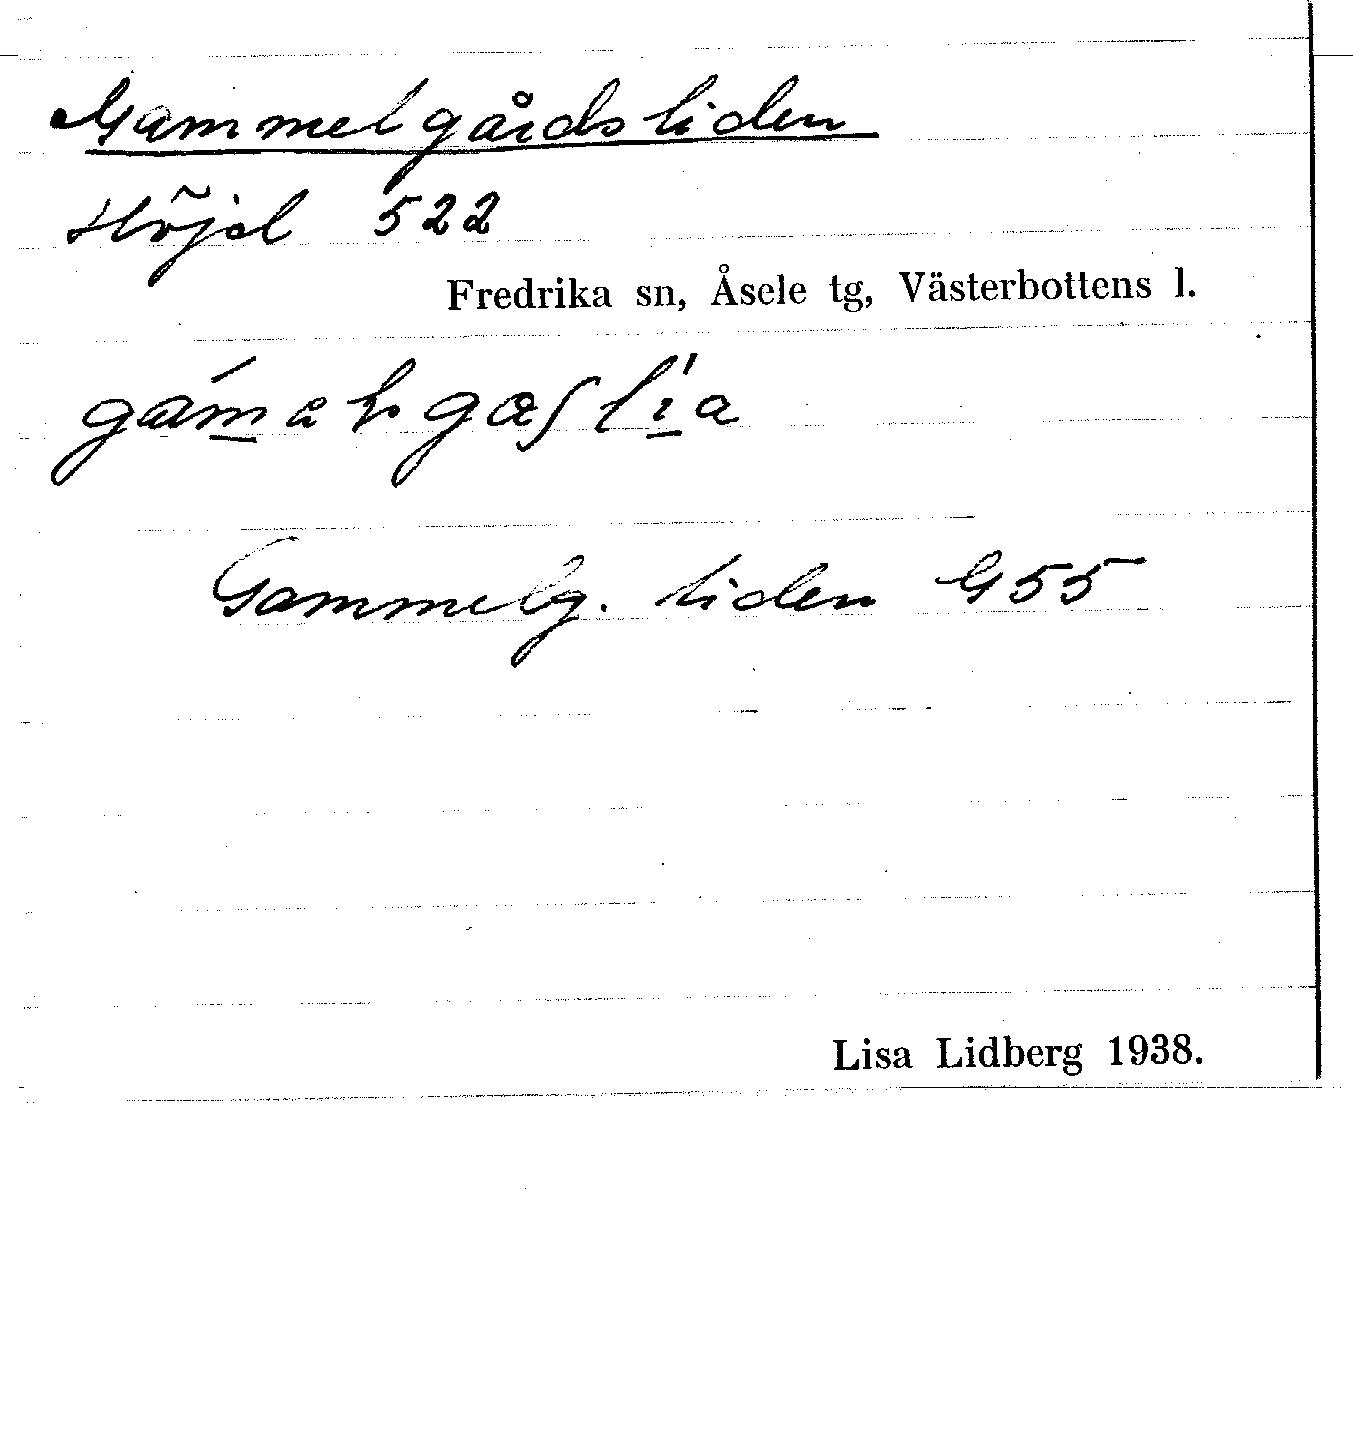 Gammelgårdsliden
Höjd 522
Fredrika sn, Åsele tg, Västerbottens l.
Gammelg. liden G55
Lisa Lidberg 1938.